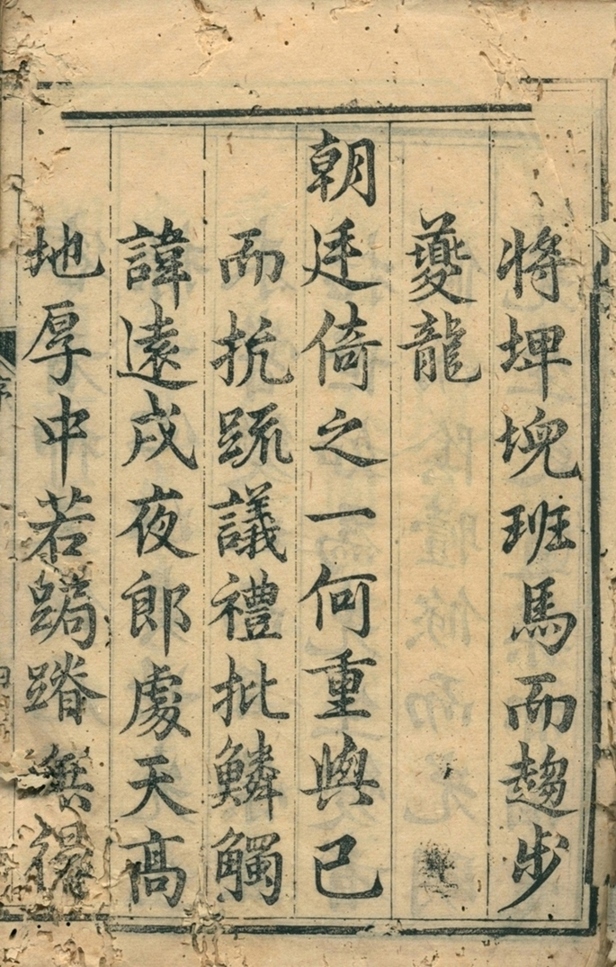 將埤堄班馬而趨步
夔龍
朝廷倚之一何重與已
而抗疏議禮批鱗觸
諱遠戍夜郎處天高
地厚中若跼蹐無
序